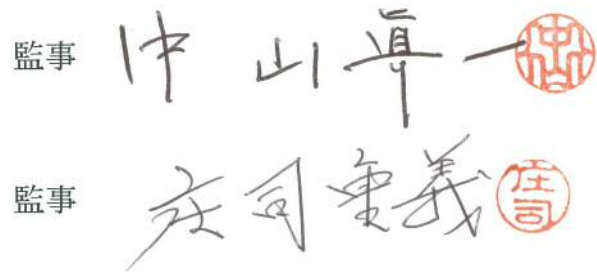 監事 中山眞一 中山
監事 庄司重義 庄司